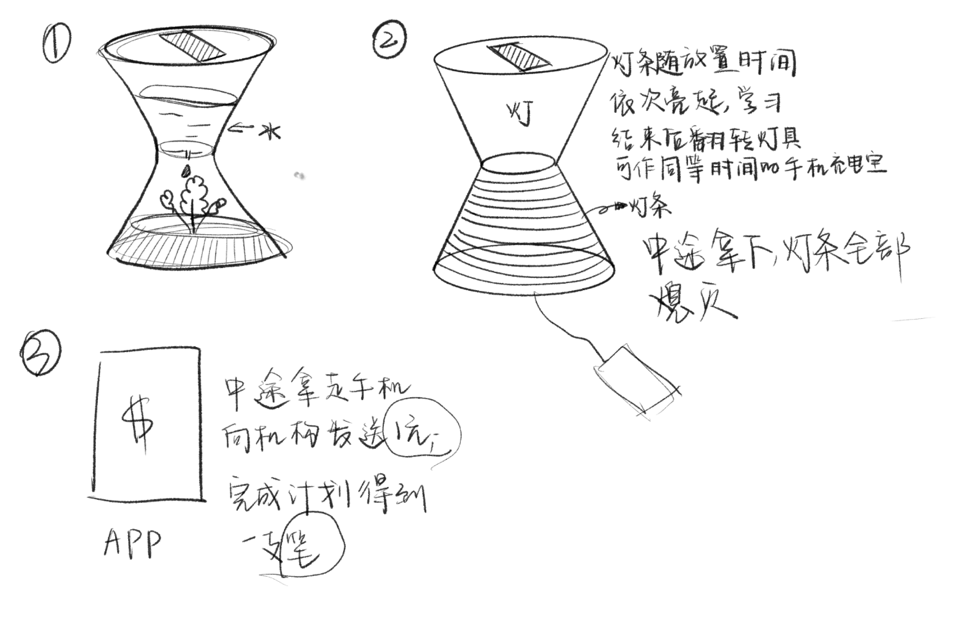 ①
水
②
灯
灯条随放置时间
依次亮起,学习
结束后翻转灯具
可作同等时间的手机充电宝
灯条
中途拿下,灯条全部
熄灭
③
$
APP
中途拿走手机
向机构发送1元;
完成计划得到
一支笔